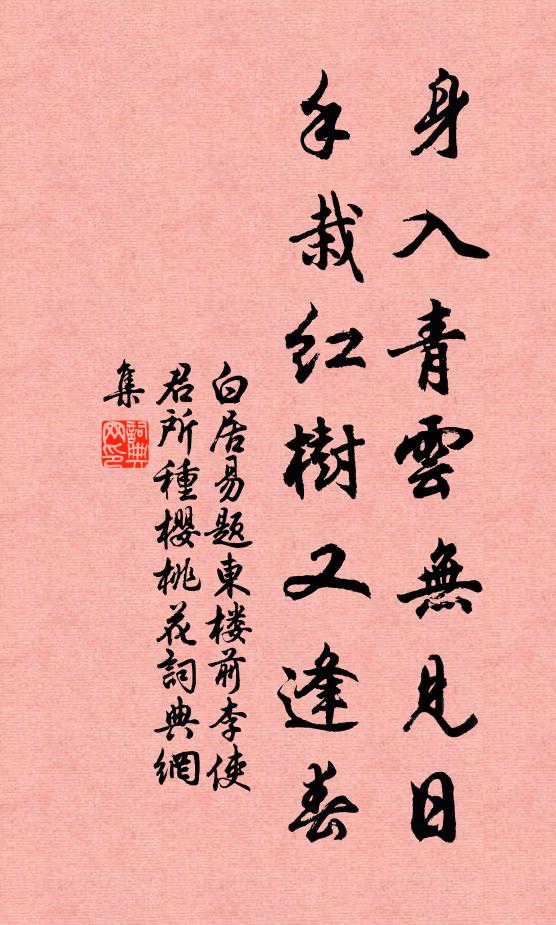 身入青雲無見日
手栽紅樹又逢春
白居易題東楼前李使
君所種櫻桃花詞典網
集
詞典
网印